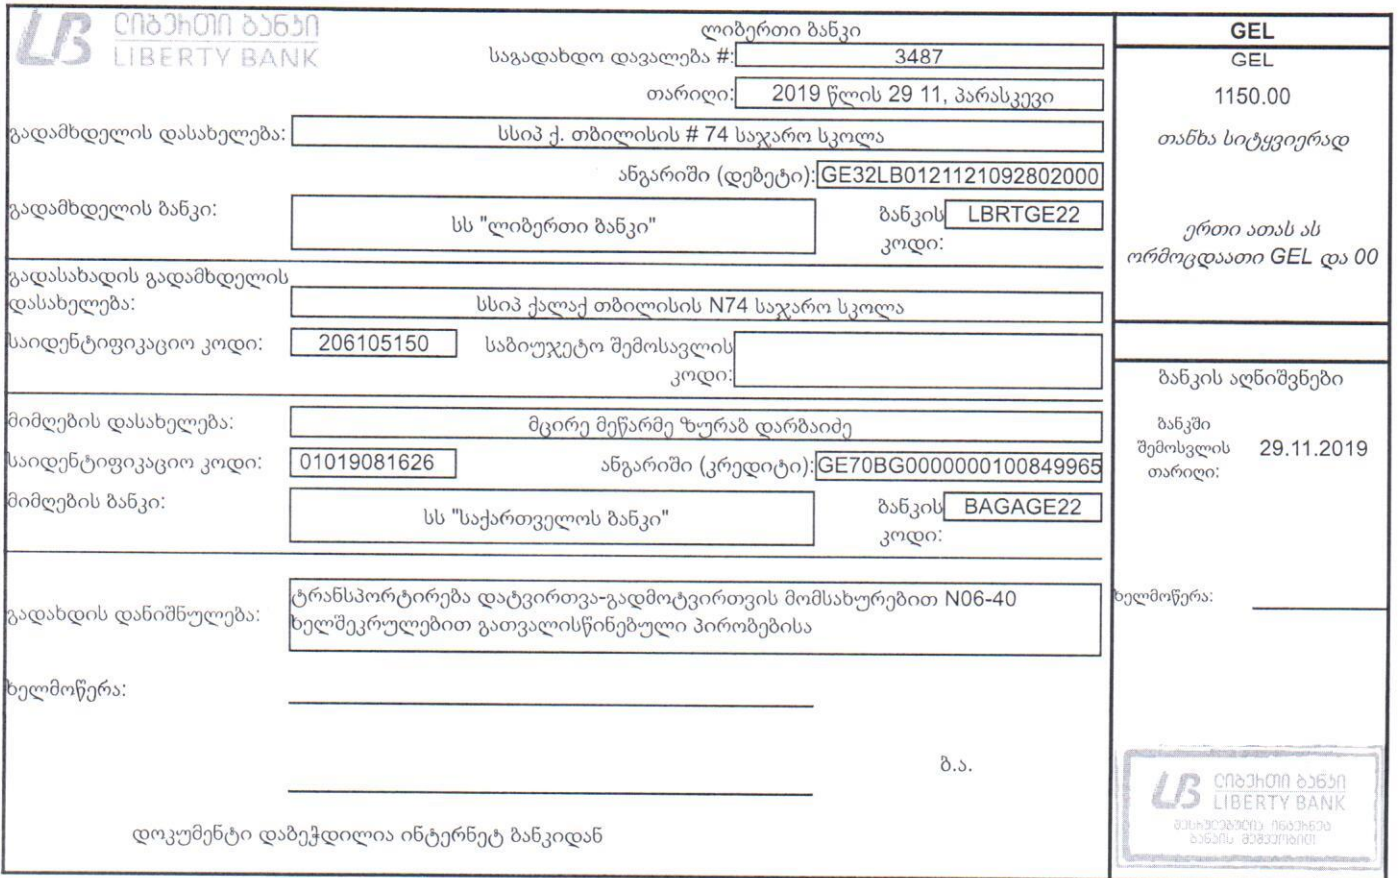 ლიბერთი ბანკი
LIBERTY BANK
ლიბერთი ბანკი
საგადახდო დავალება #: 3487
თარიღი: 2019 წლის 29 11, პარასკევი
გადამხდელის დასახელება: სსიპ ქ. თბილისის # 74 საჯარო სკოლა
ანგარიში (დებეტი): GE32LB0121121092802000
გადამხდელის ბანკი: სს "ლიბერთი ბანკი" ბანკის კოდი: LBRTGE22
გადასახადის გადამხდელის
დასახელება: სსიპ ქალაქ თბილისის N74 საჯარო სკოლა
საიდენტიფიკაციო კოდი: 206105150 საბიუჯეტო შემოსავლის
კოდი:
მიმღების დასახელება: მცირე მეწარმე ზურაბ დარბაიძე
საიდენტიფიკაციო კოდი: 01019081626 ანგარიში (კრედიტი): GE70BG0000000100849965
მიმღების ბანკი: სს "საქართველოს ბანკი" ბანკის კოდი: BAGAGE22
გადახდის დანიშნულება: ტრანსპორტირება დატვირთვა-გადმოტვირთვის მომსახურებით N06-40
ხელშეკრულებით გათვალისწინებული პირობებისა
ხელმოწერა:
ბ.ა.
დოკუმენტი დაბეჭდილია ინტერნეტ ბანკიდან
GEL
GEL
1150.00
თანხა სიტყვიერად
ერთი ათას ას
ორმოცდაათი GEL და 00
ბანკის აღნიშვნები
ბანკში
შემოსვლის 29.11.2019
თარიღი:
ხელმოწერა:
LB ლიბერთი ბანკი
LIBERTY BANK
შესრულებულია ინტერნეტ
ბანკის მეშვეობით